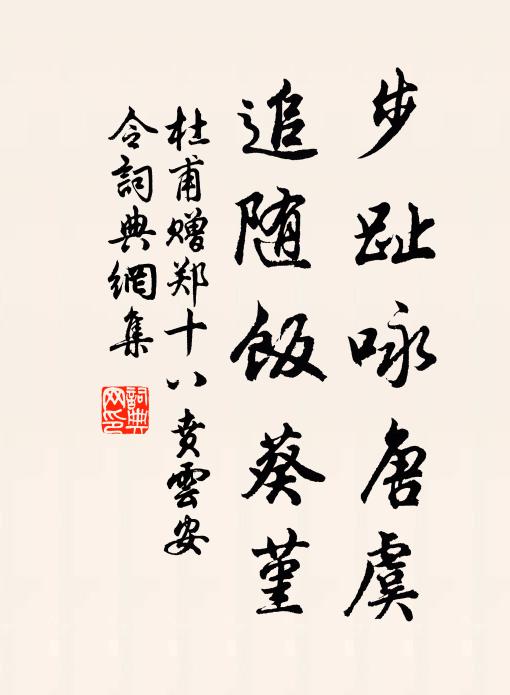 步趾咏唐虞
追随饭葵堇
杜甫赠郑十八贲雲安
令詞典網集
詞典网印